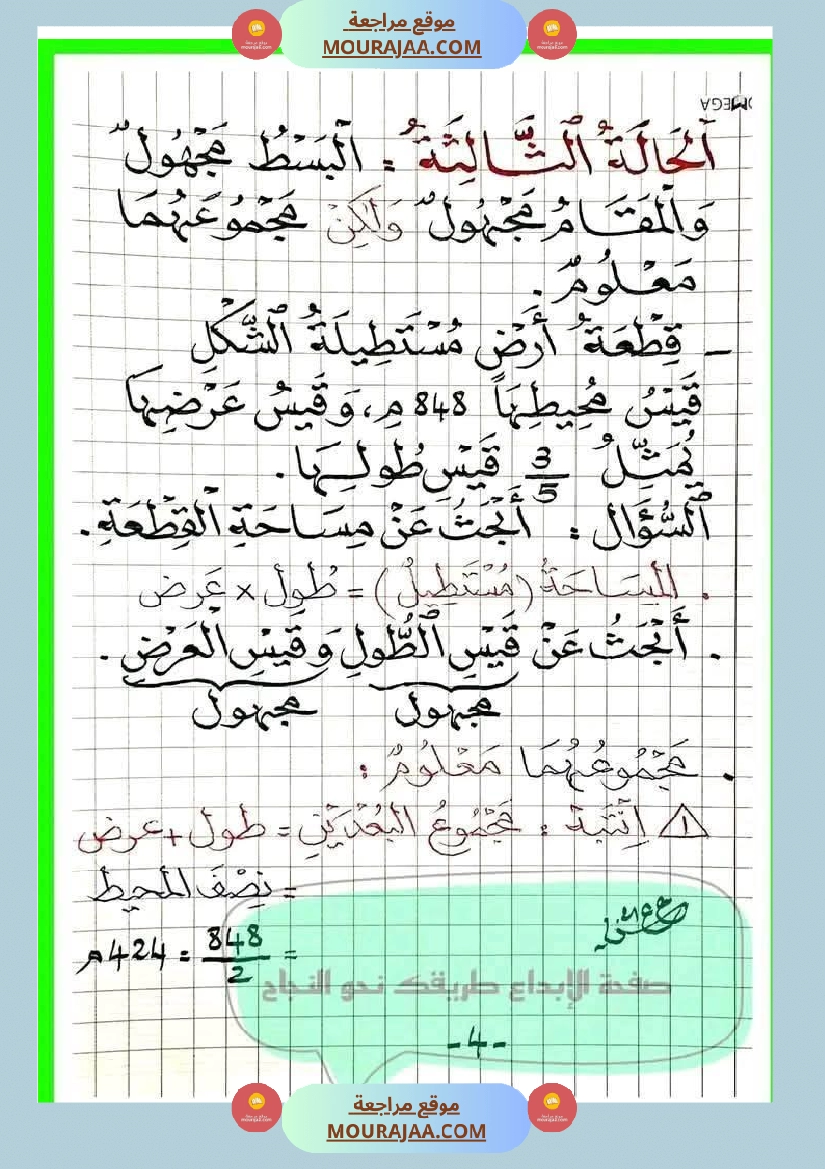 موقع مراجعة
MOURAJAA.COM
OMEGA
اَلْحَالَةُ الثَّالِثَةُ : اَلْبَسْطُ مَجْهُولٌ
وَالْمَقَامُ مَجْهُولٌ وَلَكِنْ مَجْمُوعَهُمَا
مَعْلُومٌ .
– قِطْعَةُ أَرْضٍ مُسْتَطِيلَةُ الشَّكْلِ
قَيْسُ مُحِيطِهَا 848 م، وَقَيْسُ عَرْضِهَا
يُمَثِّلُ 3/5 قَيْسِ طُولِهَا .
السُّؤَال : أَبْحَثُ عَنْ مِسَاحَةِ الْقِطْعَةِ .
. المِسَاحَةُ (مُسْتَطِيلُ) = طُول × عَرض
. أَبْحَثُ عَنْ قَيْسِ الطُّولِ وَقَيْسِ العَرْضِ .
مجهول مجهول
. مَجْمُوعُهُمَا مَعْلُومٌ :
! اِنْتَبِهْ : مَجْمُوعُ البُعْدَيْنِ = طول + عرض
= نِصْفَ المحيط
= 848/2 = 424 م
صفحة الإبداع طريقك نحو النجاح
-4-
موقع مراجعة
MOURAJAA.COM